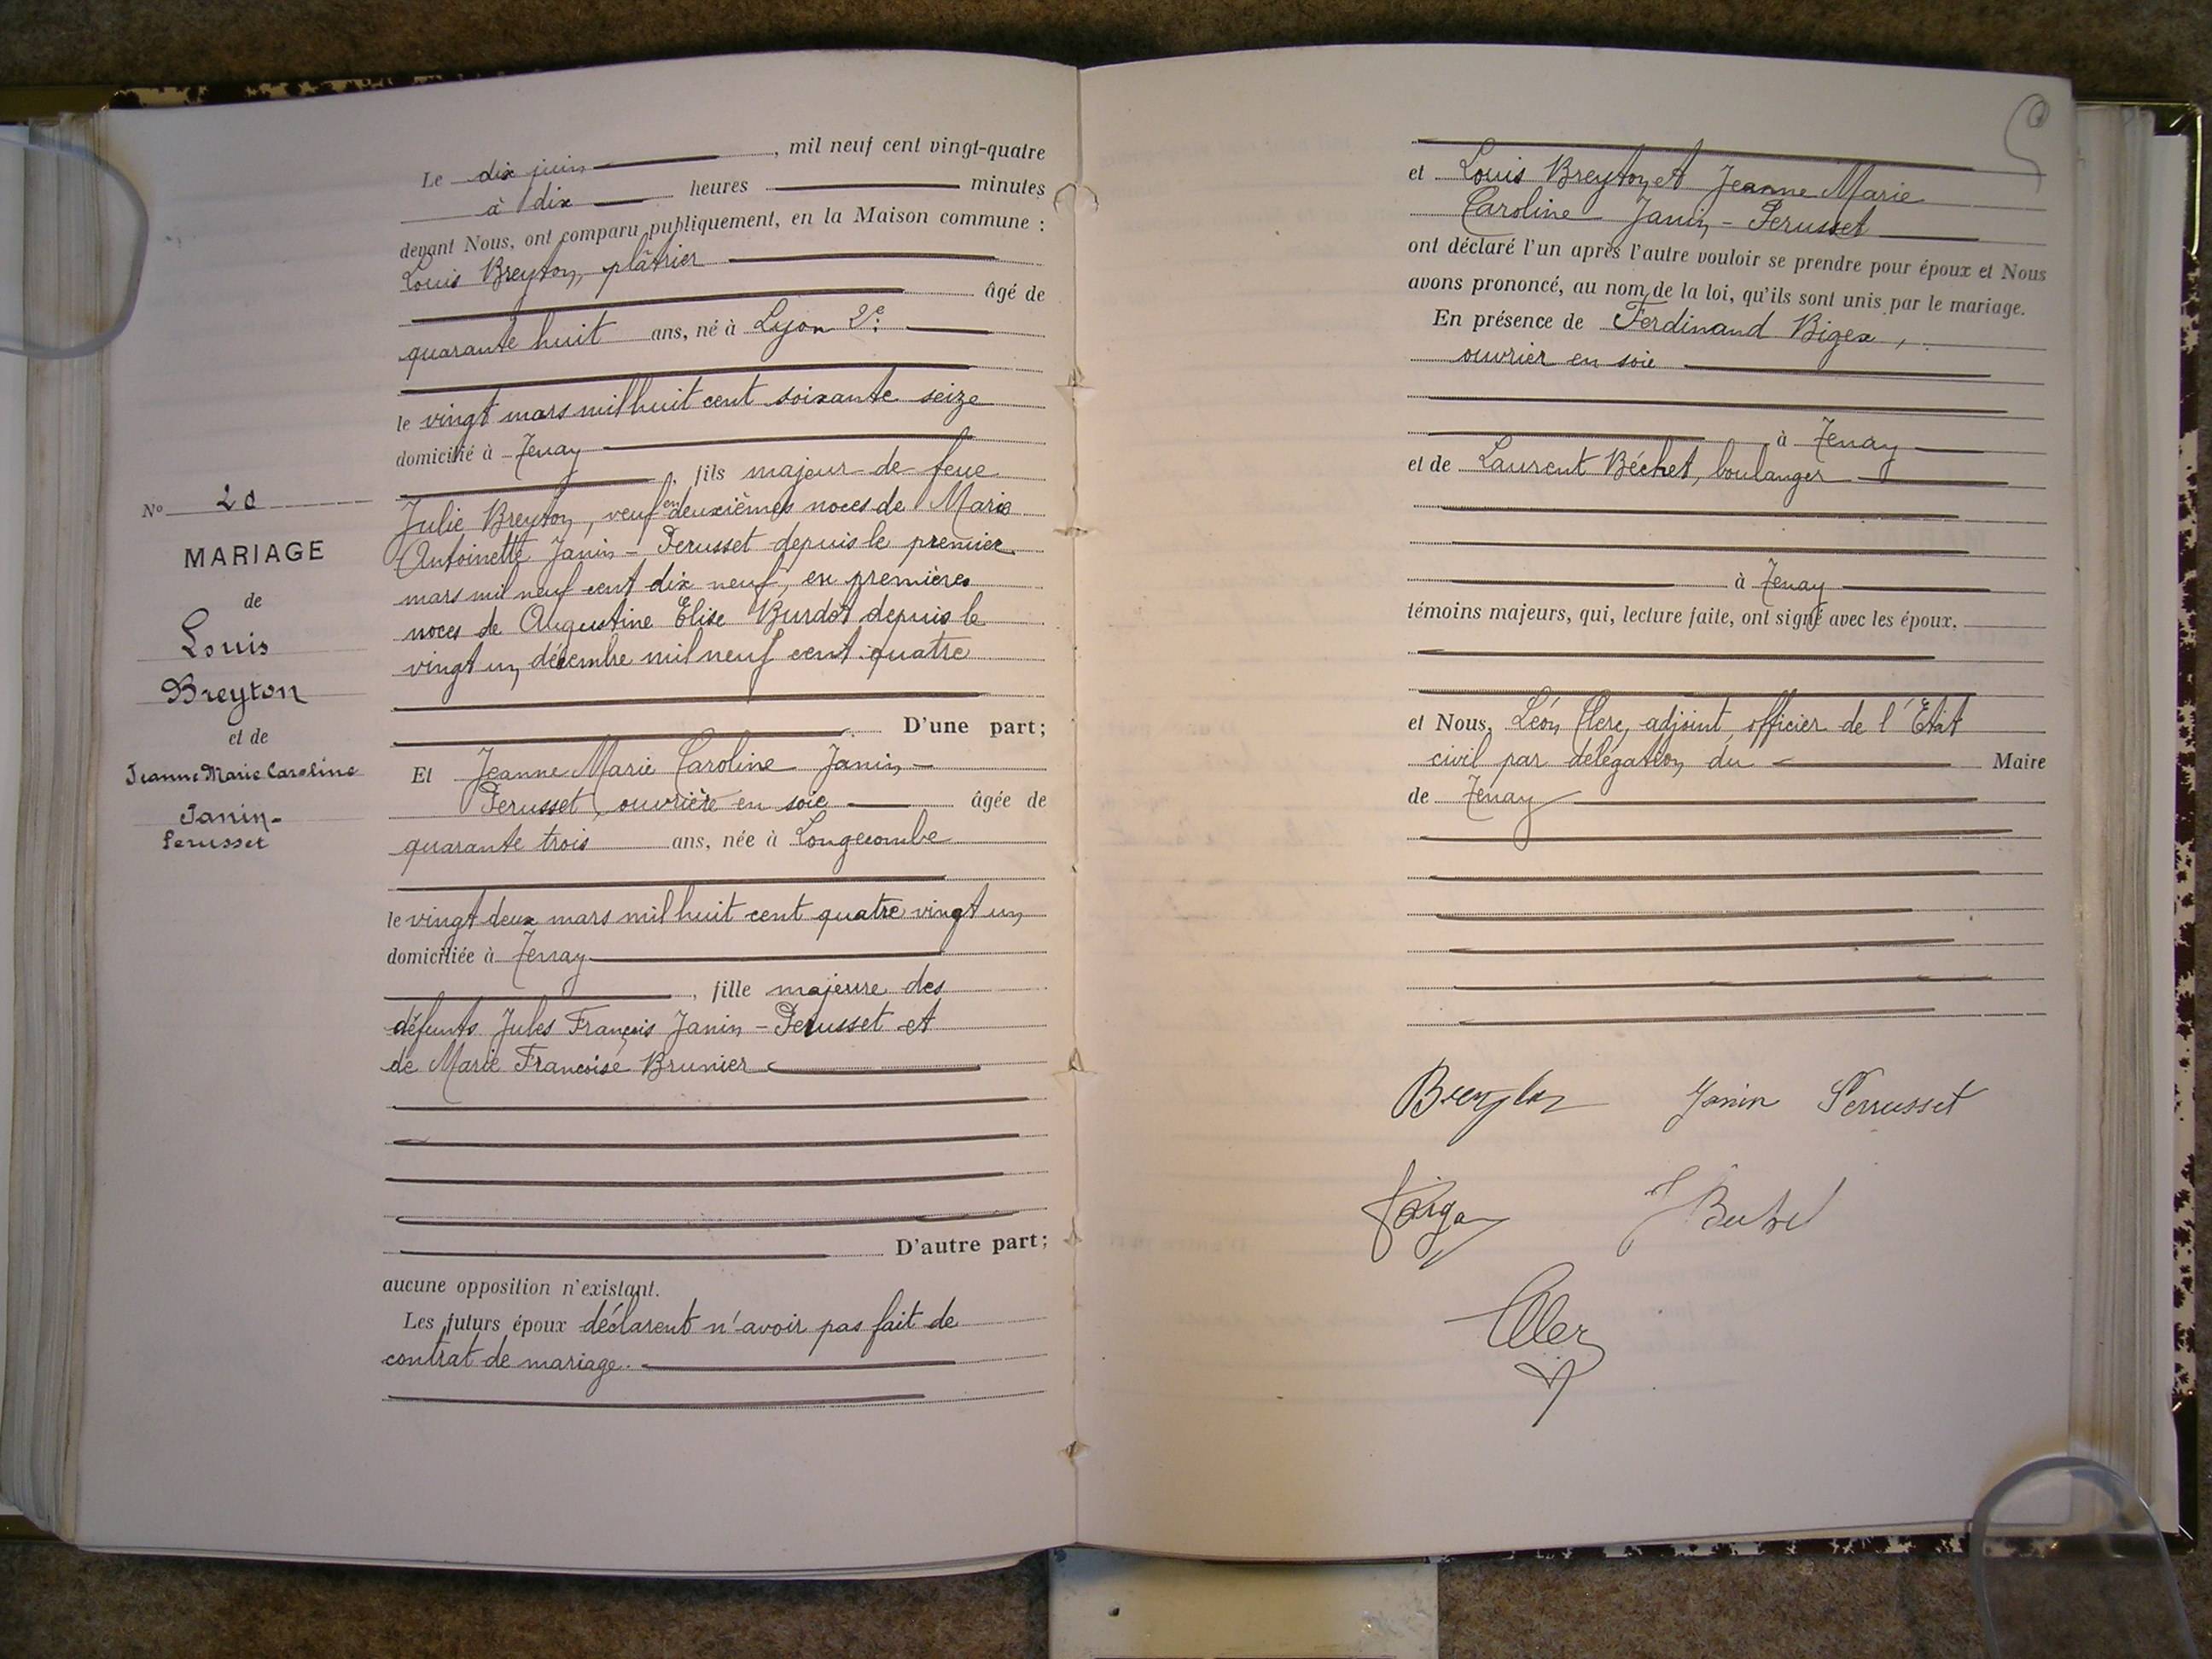 Le dix juin, mil neuf cent vingt-quatre
à dix heures minutes
devant Nous, ont comparu publiquement, en la Maison commune :
Louis Breyton, plâtrier
âgé de
quarante huit ans, né à Lyon 2e.
le vingt mars mil huit cent soixante seize
domicilié à Tenay
, fils majeur de feue
Julie Breyton, veuf en deuxièmes noces de Marie
Antoinette Janin - Perusset depuis le premier
mars mil neuf cent dix neuf, en premières
noces de Augustine Elise Burdot depuis le
vingt un décembre mil neuf cent quatre
D'une part;
No 20
MARIAGE
de
Louis
Breyton
et de
Jeanne Marie Caroline
Janin-
Perusset
Et Jeanne Marie Caroline Janin -
Perusset, ouvrière en soie âgée de
quarante trois ans, née à Longecombe
le vingt deux mars mil huit cent quatre vingt un
domiciliée à Tenay
, fille majeure des
défunts Jules François Janin - Perusset et
de Marie Françoise Brunier
D'autre part;
aucune opposition n'existant.
Les futurs époux déclarent n'avoir pas fait de
contrat de mariage.
et Louis Breyton et Jeanne Marie
Caroline Janin - Perusset
ont déclaré l'un après l'autre vouloir se prendre pour époux et Nous
avons prononcé, au nom de la loi, qu'ils sont unis par le mariage.
En présence de Ferdinand Bigex,
ouvrier en soie
à Tenay
et de Laurent Béchet, boulanger
à Tenay
témoins majeurs, qui, lecture faite, ont signé avec les époux,
et Nous, Léon Clerc, adjoint, officier de l'État
civil par délégation du Maire
de Tenay
Breyton Janin Perrusset